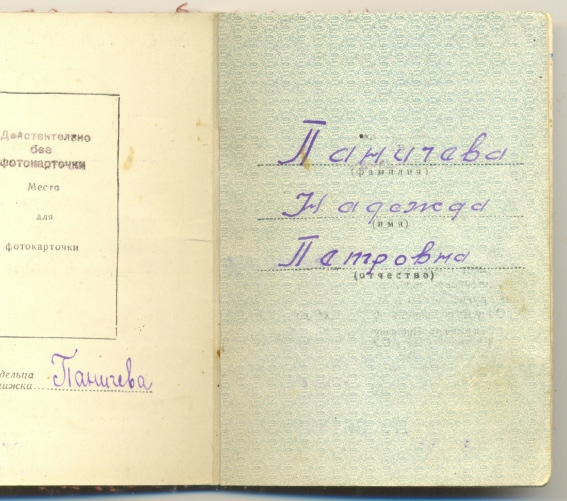 Действительно
без
фотокарточки
Место
для
фотокарточки
дельца
ижки Паничева
Паничева
(фамилия)
Надежда
(имя)
Петровна
(отчество)